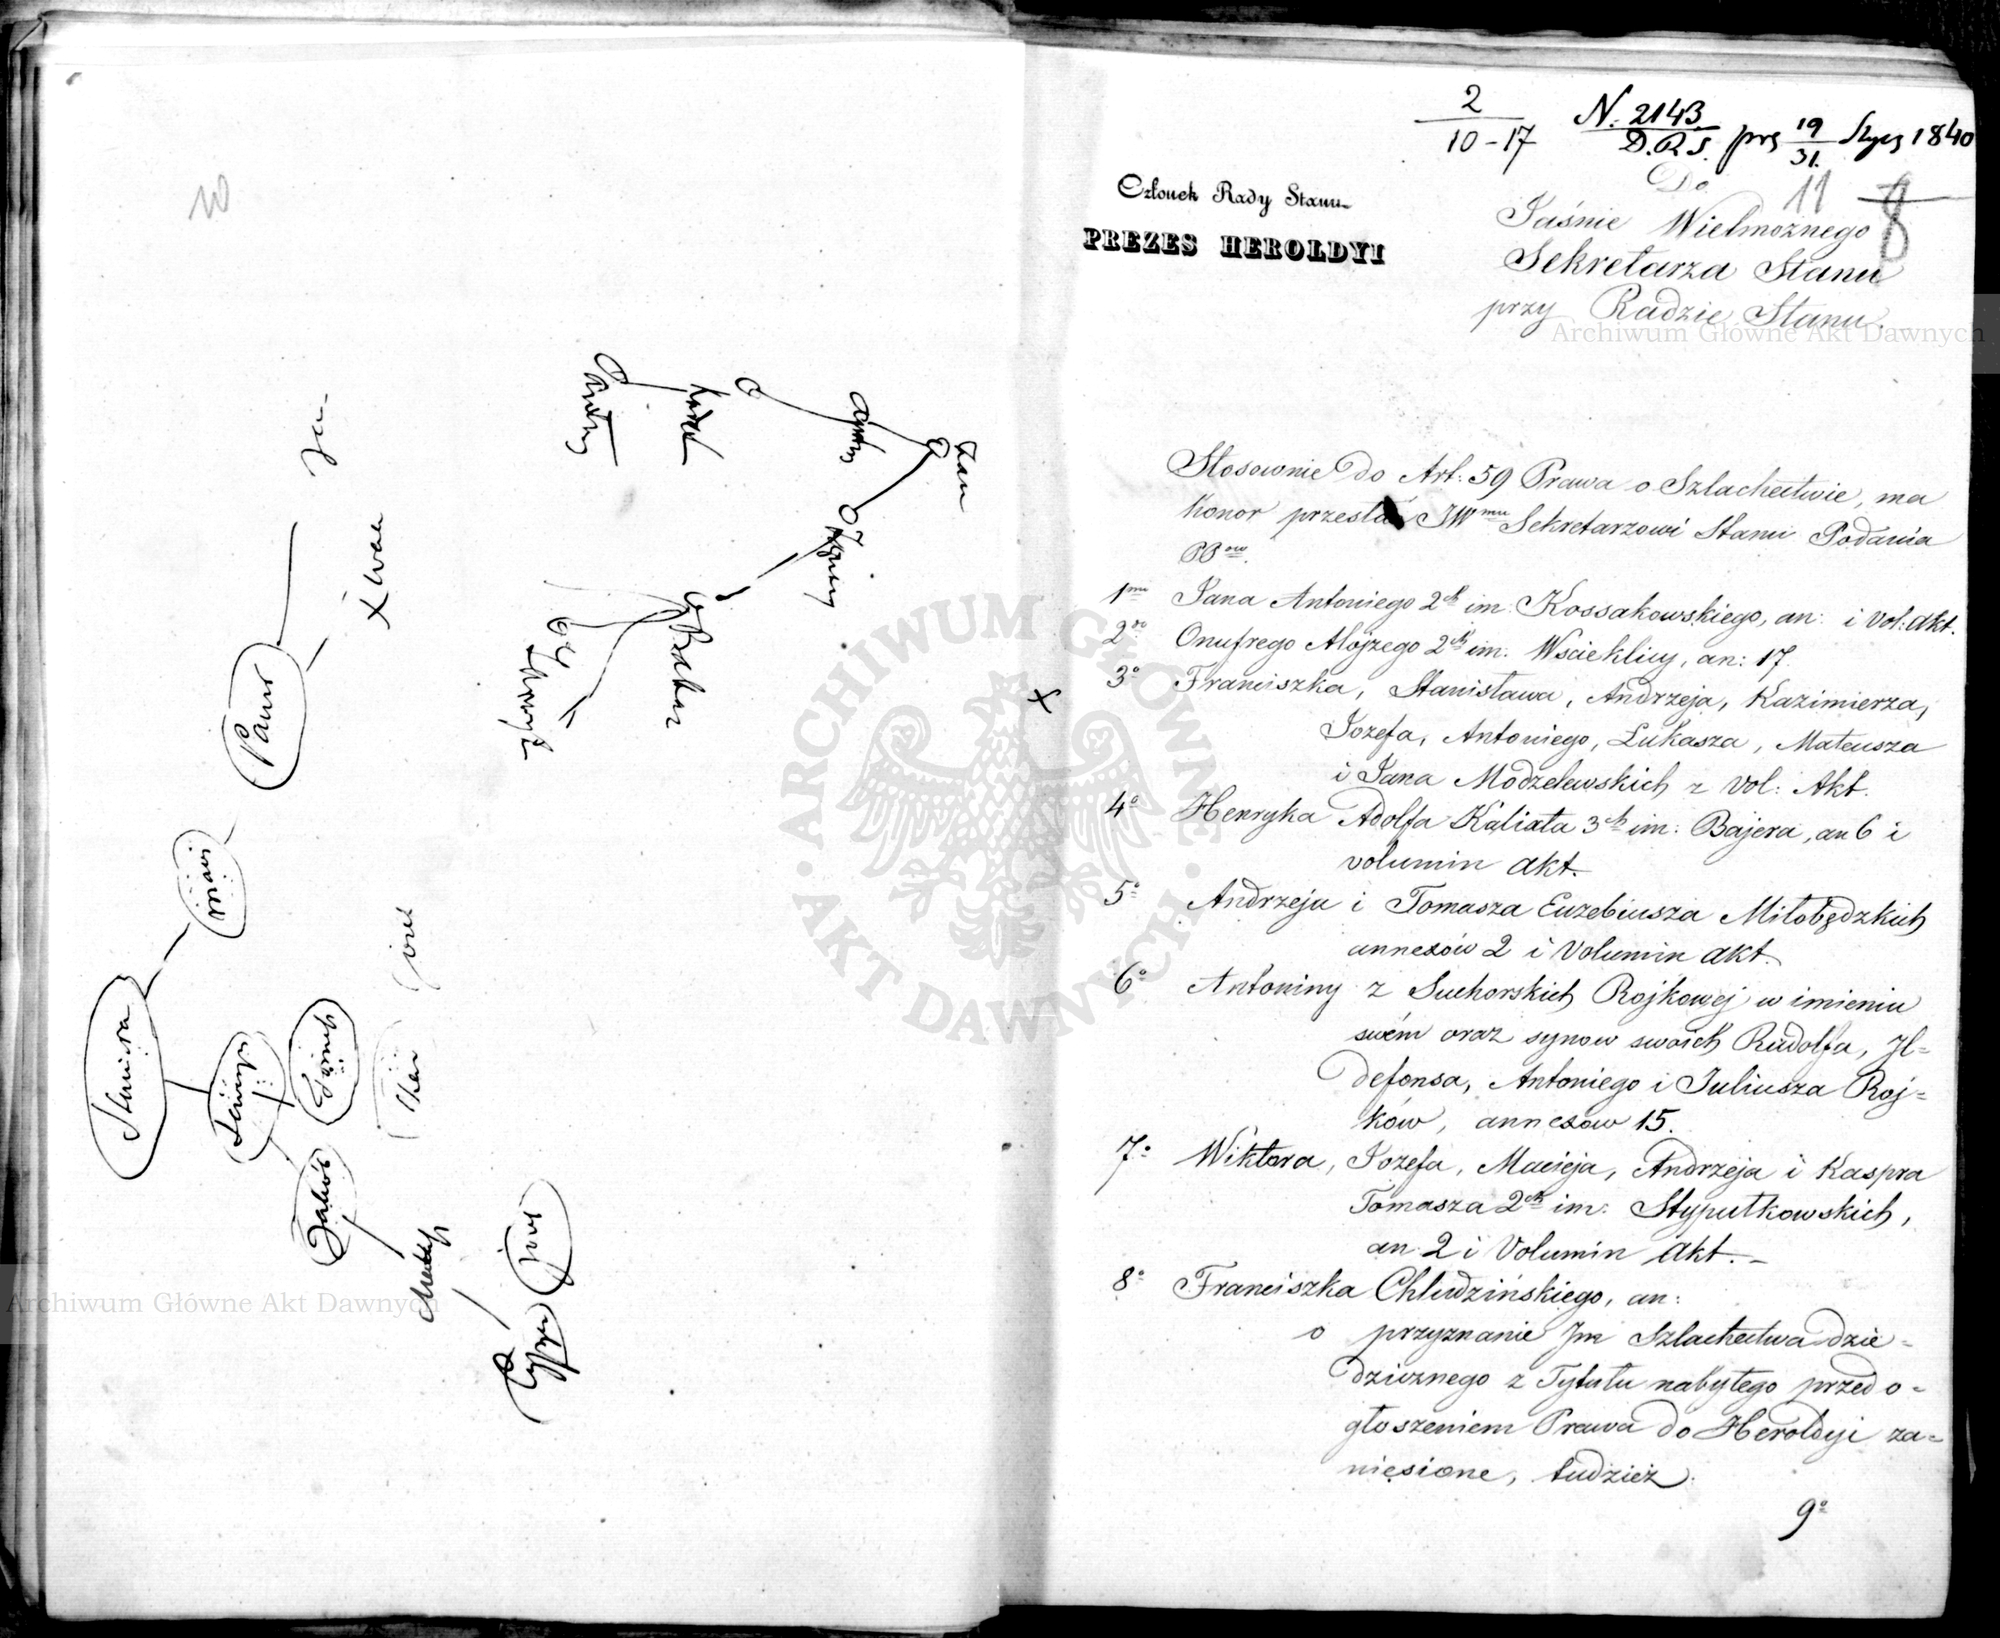 Jan
Ignacy
Karol
Stanisław
Paweł
Jakób
Józef
10
2
10-17
N. 2143
D.R.S. prs 19/31 Stycz 1840
11 8
Członek Rady Stanu
PREZES HEROLDYI
Do
Jaśnie Wielmożnego
Sekretarza Stanu
przy Radzie Stanu.
Archiwum Główne Akt Dawnych
Stosownie do Art: 59 Prawa o Szlachectwie, ma
honor przesłać JWmu Sekretarzowi Stanu Podania
PPow.
1mo Jana Antoniego 2ch im: Kossakowskiego, an: i Vol: akt.
2do Onufrego Alojzego 2ch im: Wścieklicy, an: 17.
3o Franciszka, Stanisława, Andrzeja, Kazimierza,
Jozefa, Antoniego, Łukasza, Mateusza
i Jana Modzelewskich z Vol: Akt.
4o Henryka Adolfa Kalixta 3ch im: Bajera, an 6 i
volumin akt.
5o Andrzeja i Tomasza Euzebiusza Miłobędzkich
annexów 2 i Volumin akt.
6o Antoniny z Suchorskich Rojkowej w imieniu
swém oraz synow swoich Rudolfa, Il=
defonsa, Antoniego i Juliusza Roj=
ków, annexow 15.
7o Wiktora, Jozefa, Macieja, Andrzeja i Kaspra
Tomasza 2ch im: Stypułkowskich,
an 2 i Volumin akt. –
8o Franciszka Chludzińskiego, an:
o przyznanie Im Szlachectwa dzie=
dzicznego z Tytułu nabytego przed o=
głoszeniem Prawa do Heroldyi za=
niesione, tudzież
9o
X
ARCHIWUM GŁÓWNE · AKT DAWNYCH ·
Archiwum Główne Akt Dawnych